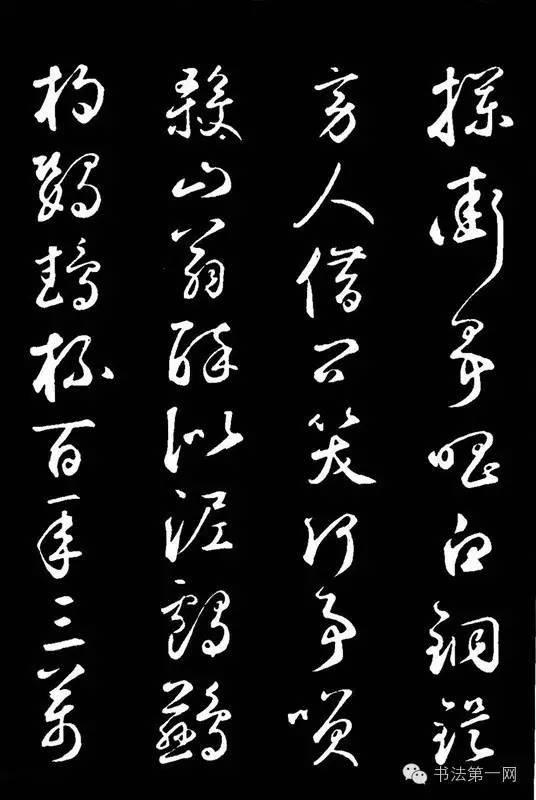 攔街爭唱白銅鍉
旁人借問笑何事咲
殺山翁醉似泥鸕鷀
杓鸚鵡杯百年三萬
书法第一网